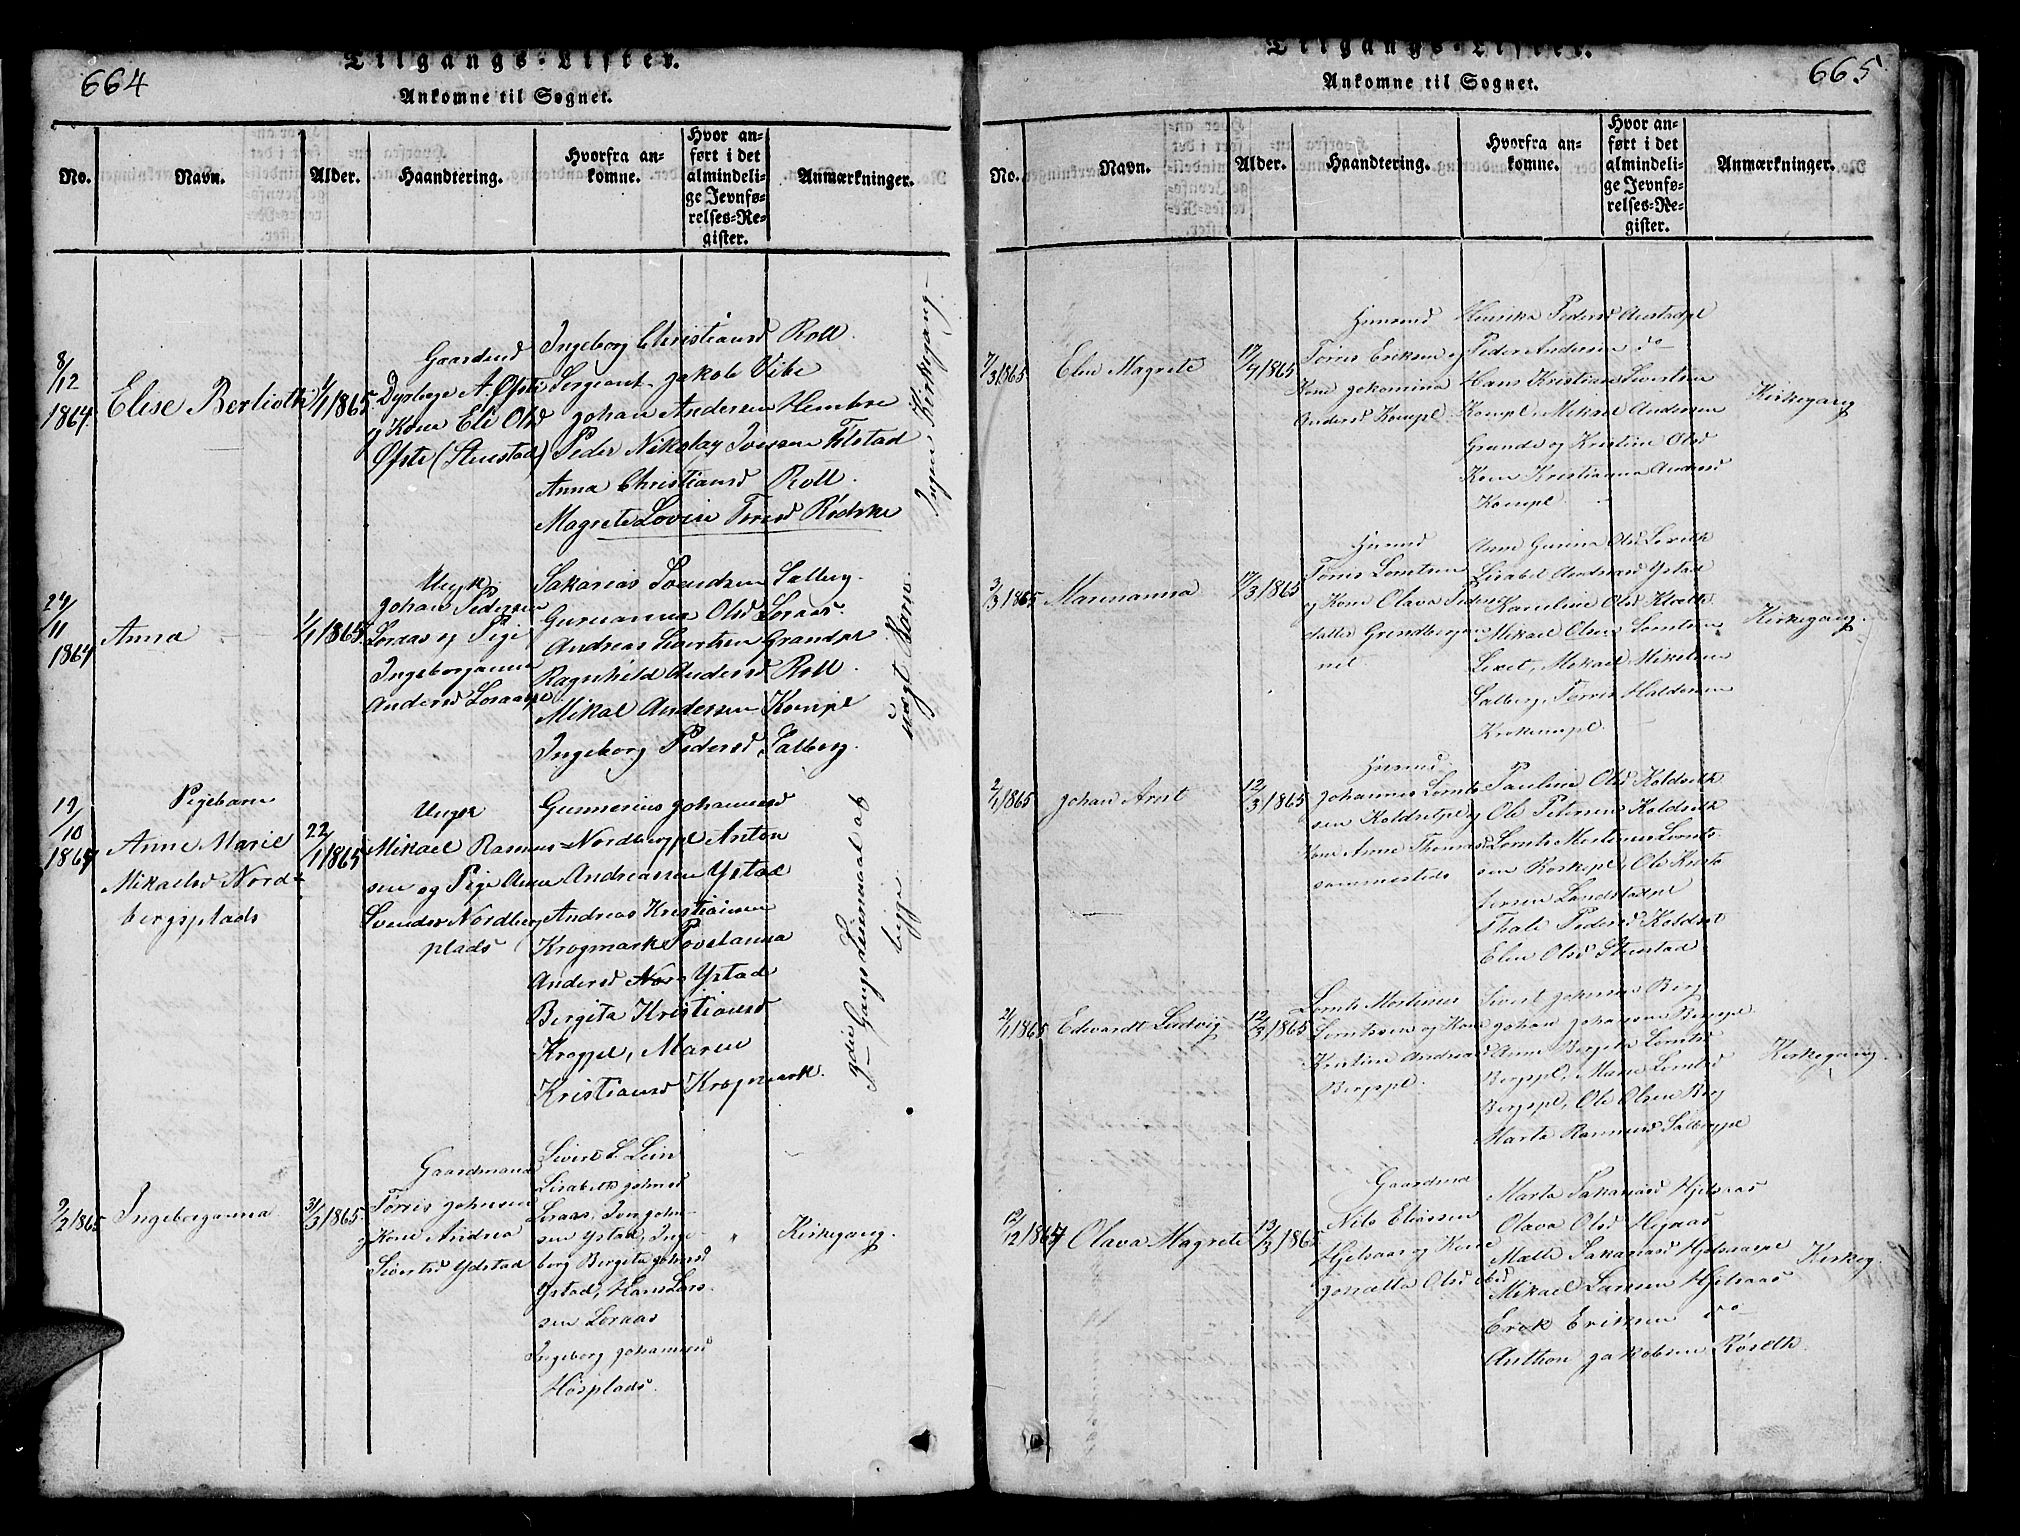 664
Tilgangs-Lister.
Ankomne til Sognet.
No.
Navn.
Alder.
Haandtering.
Hvorfra an-
komne.
Hvor an-
ført i det
almindeli-
ge Jevnfø-
relses-Re-
gister.
Anmærkninger.
8/12
1864.
Elise Berlioth
1/1 1865.
Gaardmd
A. Øfste
og Kone Eli Olsd
Øfste (Stuestad)
Ingeborg Christiansd Roll.
Sergeant Jakob Vibe
Johan Andersen Hembre
Peder Nikolay Iversen Filstad
Anna Christiansd Roll.
Magrete Lovise Torrisd Rødske
24/11
1864
Anna
1/1 1865.
Ungk.
Johan Pedersen
Loraas og Pige
Ingeborganna
Andersd Loraaspl
Sakarias Svendsen Salberg.
Gurianna Olsd Loraas.
Andreas Larsen Grandpl
Ragnhild Andersd Roll.
Mikal Andersen Kompl
Ingeborg Pedersd Salberg.
Ingen Kirkegang.
uægt Barn.
19/10
1864
Pigebarn
Anne Marie
Mikaelsd Nord-
bergsplads
22/1 1865
Ungk
Mikael Rasmus-
sen og Pige Anne
Svendsd Nordberg
plads
Gunnerius Johannesd
Nordbergpl Anton
Andreassen Ystad
Andreas Kristiansen
Krogmark Povelanna
Andersd Ystad
Bergita Kristiansd
Krogpl, Maren
Kristiansd Krogmark.
1ste Gangs Leiermaal af
begge
2/2 1865
Ingeborganna
31/3 1865
Gaardmand
Torris Johnsen
og Kone Andrea
Sivertsd Ydstad
Sivert L. Lein
Lisabeth Johnsd
Loraas, Iver John-
sen Ystad, Inge-
borg Bergita Johnsd
Ystad, Hans Lars-
sen Loraas
Ingeborg Johannesd
Hosplads.
"
Kirkegang.
Tilgangs-Lister.
665
Ankomne til Sognet.
No.
Navn.
Alder.
Haandtering.
Hvorfra an-
komne.
Hvor an-
ført i det
almindeli-
ge Jevnfø-
relses-Re-
gister.
Anmærkninger.
7/3 1865
Elen Magrete
17/4 1865
Husmd
Torris Eriksen og
Kone Jokomina
Andersd Kompl.
Henrika Pedersd Austadpl
Peder Andersen do
Hans Kristian Sivertsen
Kompl, Mikael Andersen
Grande og Kristine Olsd
Kone Kristianna Andersd
Kompl
Kirkegang
3/3 1865
Mannanna
17/3 1865
Husmd
Torris Lorntsen
og Kone Olava Peders-
datter Grindberg
Anne Gurine Olsd
Lisabet Andreasd Ystad
Karoline Olsd
Mikael Olsen Lorntsen
Mikael Mikelsen
Salberg, Torris Haldorsen
Kirkegang.
2/1 1865
Johan Arnt
12/3 1865
Husmd
Johannes Lornt-
sen Koldsetpl og
Kone Anne Thomasd
sammesteds
Pauline Olsd Koldseth
Ole Petersen Koldseth
Lornts Mortinus Lornt-
sen Ole Kristo-
fersen Landstadpl
Thale Pedersd Koldset
Elen Olsd Stuestad
21/1 1865
Edvardt Ludvig
12/3 1865
Lornts Mortinus
Lorntssen og Kone
Kristine Andreasd
Bergspl.
Sivert Johnsen Berg
Johan Johansen Bergspl
Anne Bergita Lorntsd
Bergspl, Marie Lorntsd
Bergspl, Ole Olsen Berg
Marta Rasmusd Salbergpl
Kirkegang.
12/12 1864
Olava Magrete
12/3 1865
Gaardmd
Nils Eliassen
Hjelsaas og Kone
Jonetta Olsd ibid
Marta Sakariasd Hjelsaas
Olava Olsd Hjelsaas
Malte Sakariasd Hjelsaaspl
Mikael Larssen Hjelsaas
Erik Eriksen do
Anthon Jakobsen Røseth.
Kirkeg.